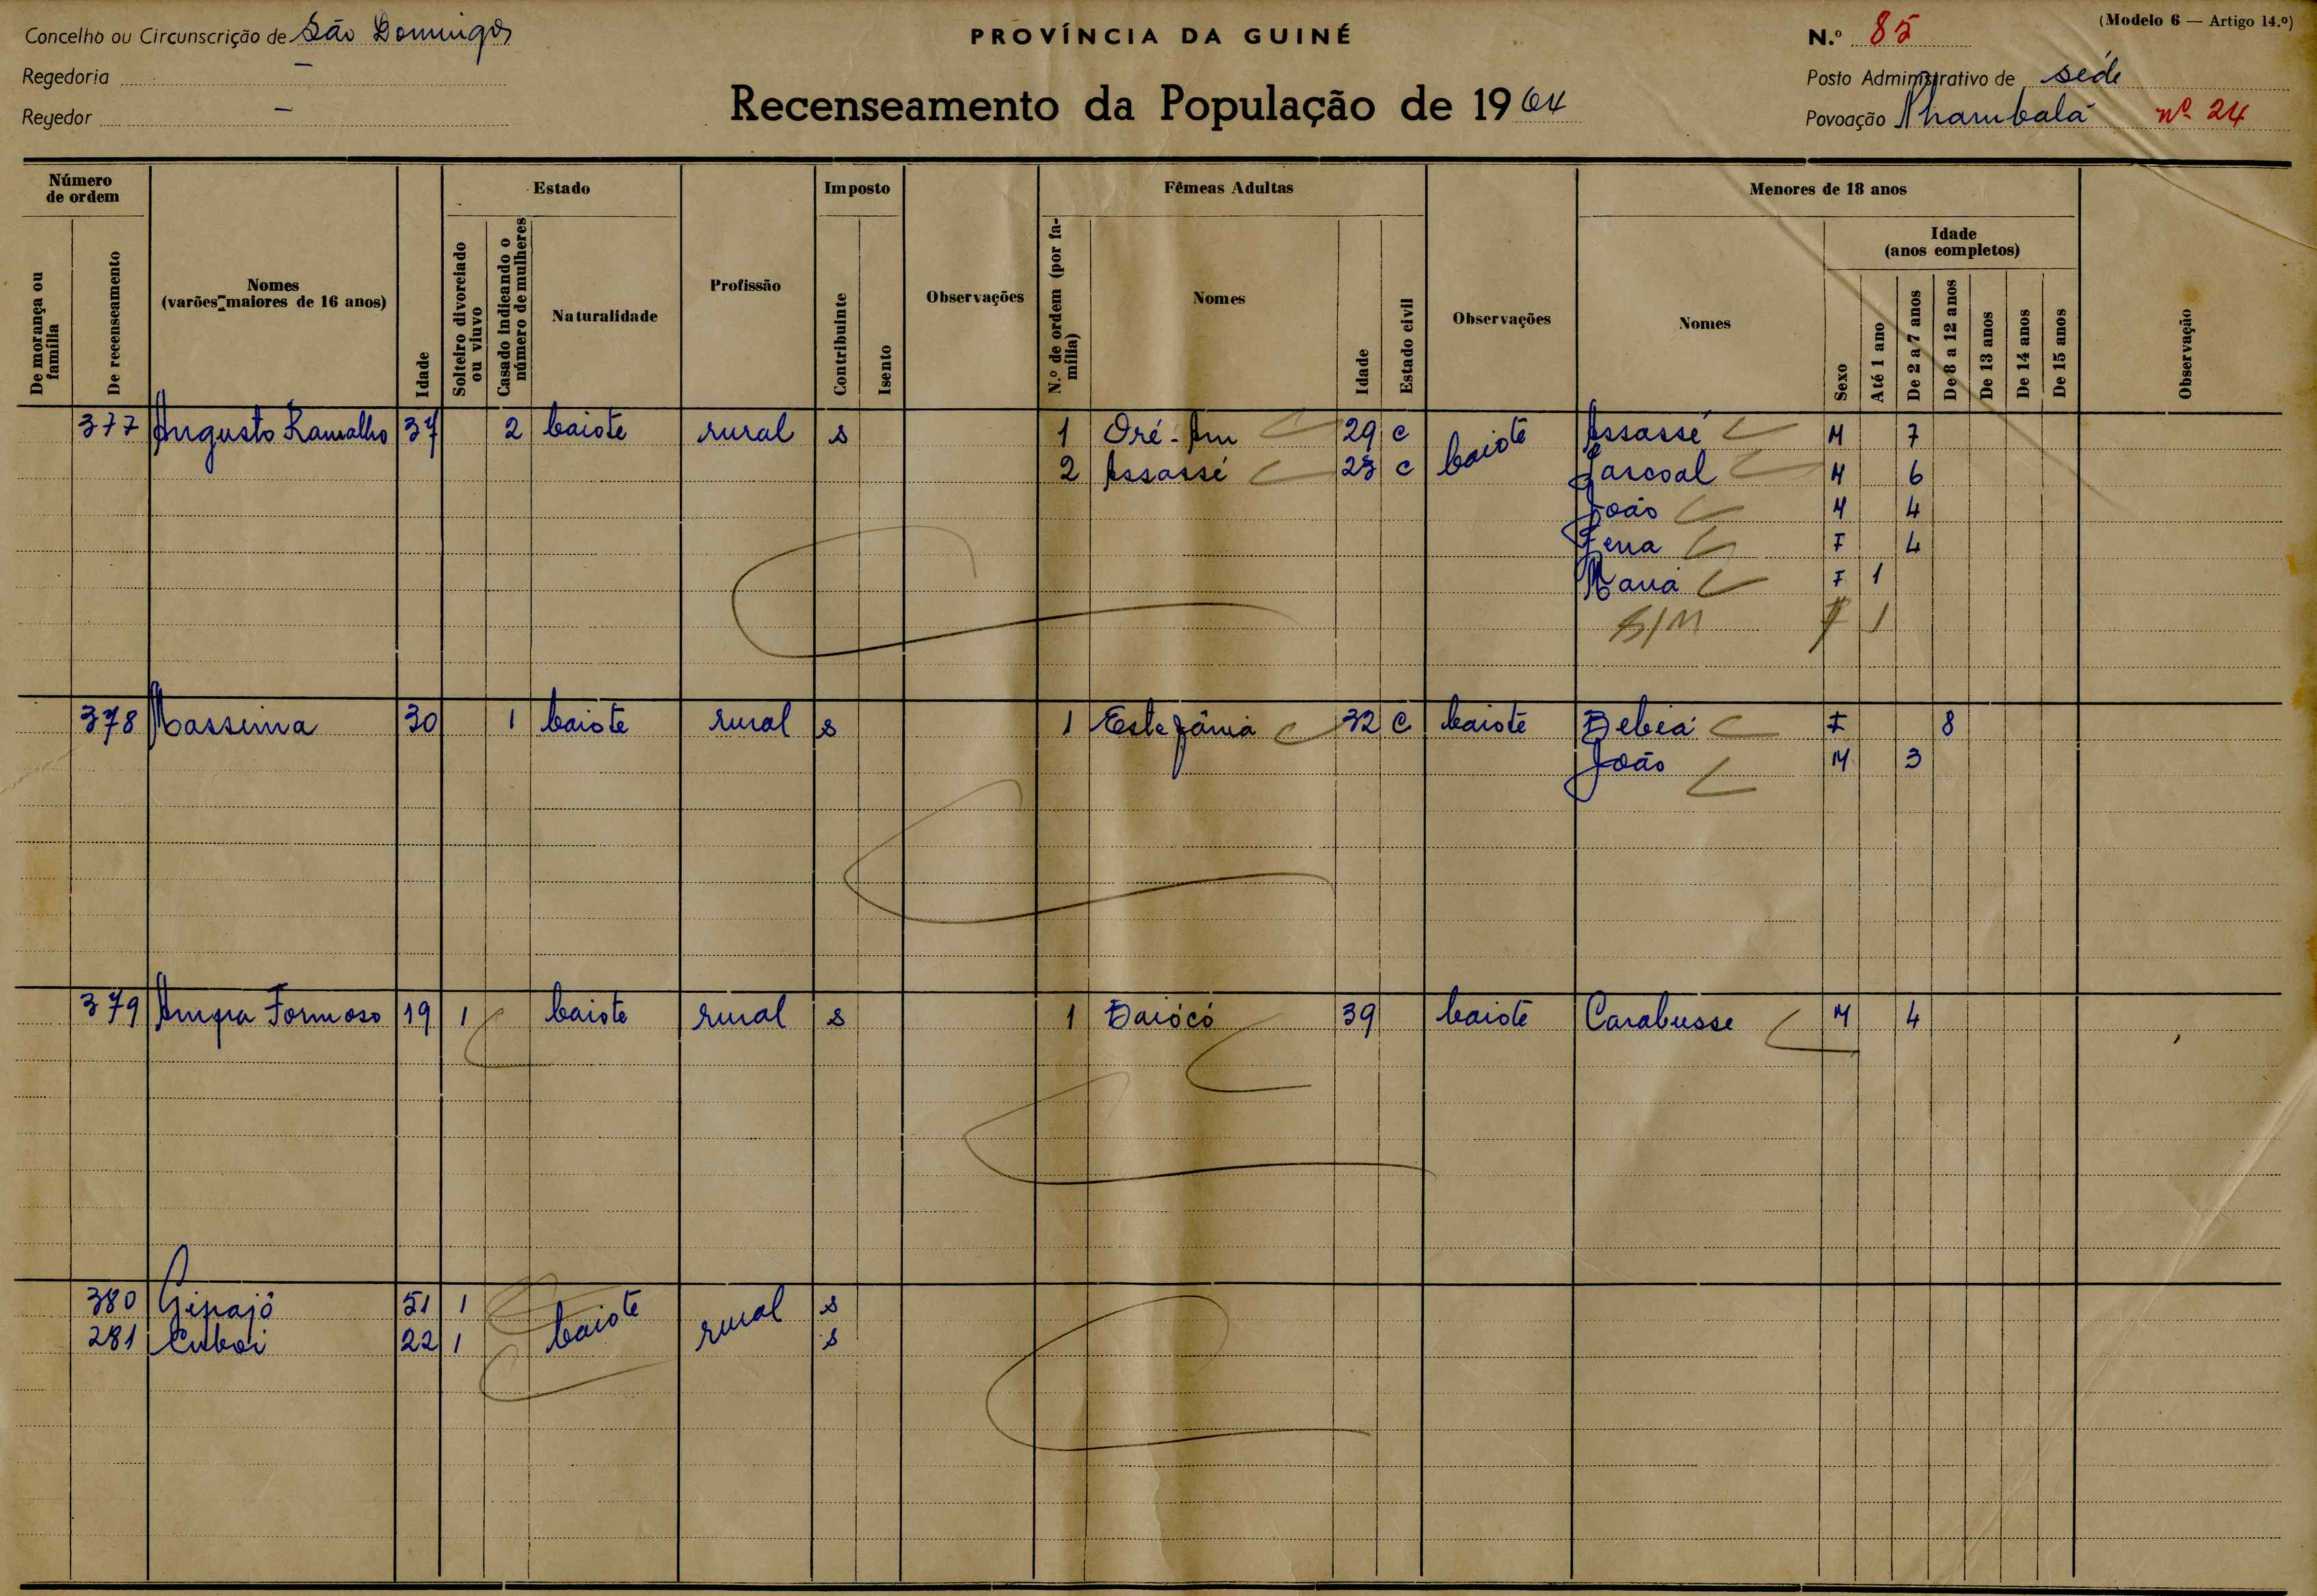 (Modelo 6 — Artigo 14.º)
Concelho ou Circunscrição de São Domingos
PROVÍNCIA DA GUINÉ
N.º 85
Regedoria —
Posto Administrativo de séde
Recenseamento da População de 1964
Regedor —
Povoação Nhambalá nº 24
Número de ordem
Estado
Imposto
Fêmeas Adultas
Menores de 18 anos
Idade (anos completos)
De morança ou família
De recenseamento
Nomes (varões maiores de 16 anos)
Idade
Solteiro divorciado ou viuvo
Casado indicando o número de mulheres
Naturalidade
Profissão
Contribuinte
Isento
Observações
N.º de ordem (por família)
Nomes
Idade
Estado civil
Observações
Nomes
Sexo
Até 1 ano
De 2 a 7 anos
De 8 a 12 anos
De 13 anos
De 14 anos
De 15 anos
Observação
377 Augusto Ramalho 37 2 baiote rural s 1 Oré-Am 29 c baiote Assassé M 7
2 Assassé 23 c Pascoal M 6
João M 4
F 4
F 1
S/M F 1
378 30 1 baiote rural s 1 Estefânia 32 c baiote Bebeá F 8
João M 3
379 Ampa Formoso 19 1 baiote rural s 1 Baiócó 39 baiote Carabusse M 4
380 Gipajô 51 1 baiote rural s
281 Cuboi 22 1 s